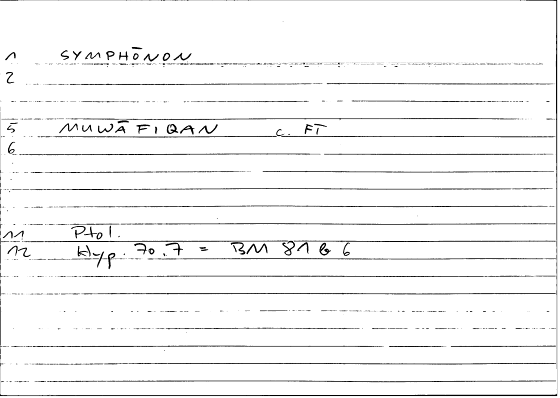 1 SYMPHŌNON
2
5 MUWĀFIQAN c. FĪ
6
11 Ptol.
12 Hyp. 70.7 = BM 81 b 6